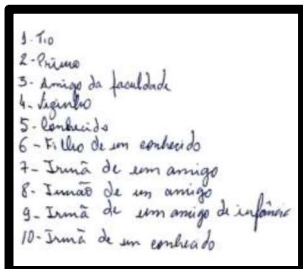 1- Tio
2- Primo
3- Amigo da faculdade
4- Vizinho
5- Conhecido
6- Filho de um conhecido
7- Irmã de um amigo
8- Irmão de um amigo
9- Irmã de um amigo de infância
10- Irmã de um conhecido